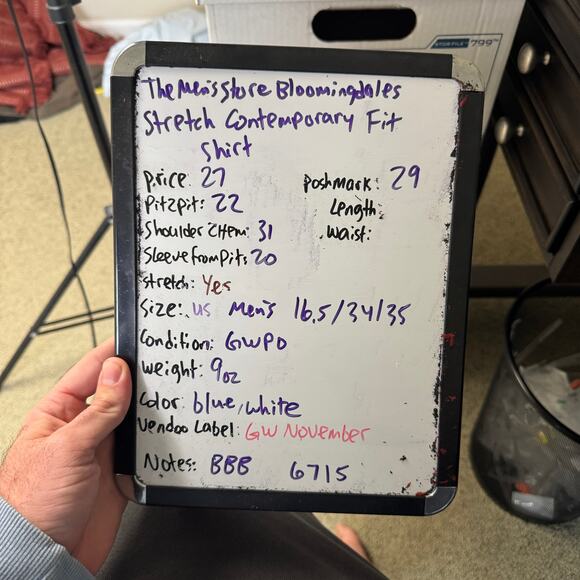 STOR/FILE™ 799™
The Men's Store Bloomingdales
Stretch Contemporary Fit
Shirt
price: 27 poshmark: 29
Pit2pit: 22 Length:
Shoulder2Hem: 31 Waist:
Sleeve from Pit: 20
Stretch: Yes
Size: US Men's 16.5/34/35
Condition: GWPO
Weight: 9oz
Color: blue, white
Vendoo Label: GW November
Notes: BBB 6715